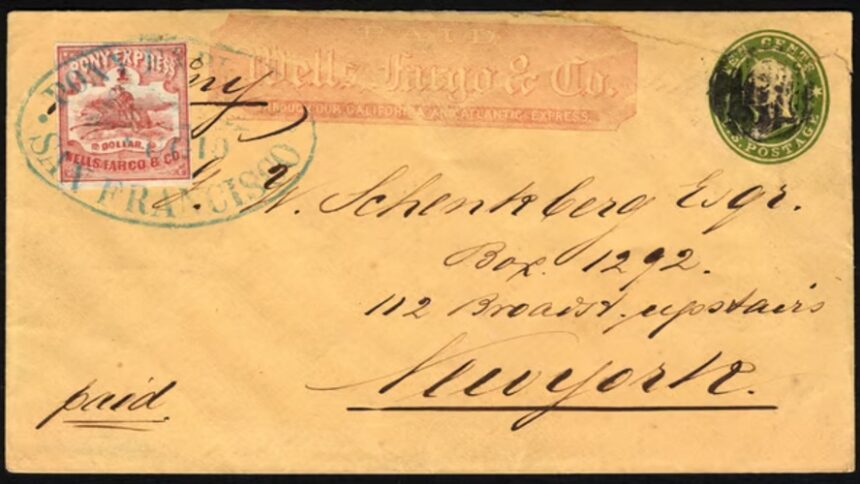 PAID
Wells, Fargo & Co.
THROUGH OUR CALIFORNIA AND ATLANTIC EXPRESS.
PONY EXPRESS
DOLLAR
WELLS, FARGO & CO
PONY
SAN FRANCISCO
Pony
TEN CENTS
U.S. POSTAGE
W. Schenkberg Esqr.
Box. 1292.
112 Broadst, upstairs
New york.
paid